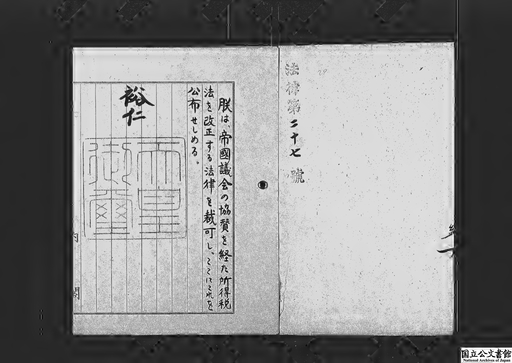 法律第二十七號
朕は、帝國議会の協賛を経た所得税
法を改正する法律を裁可し、ここにこれを
公布せしめる。
裕仁
天皇
御璽
内閣
国立公文書館
National Archives of Japan